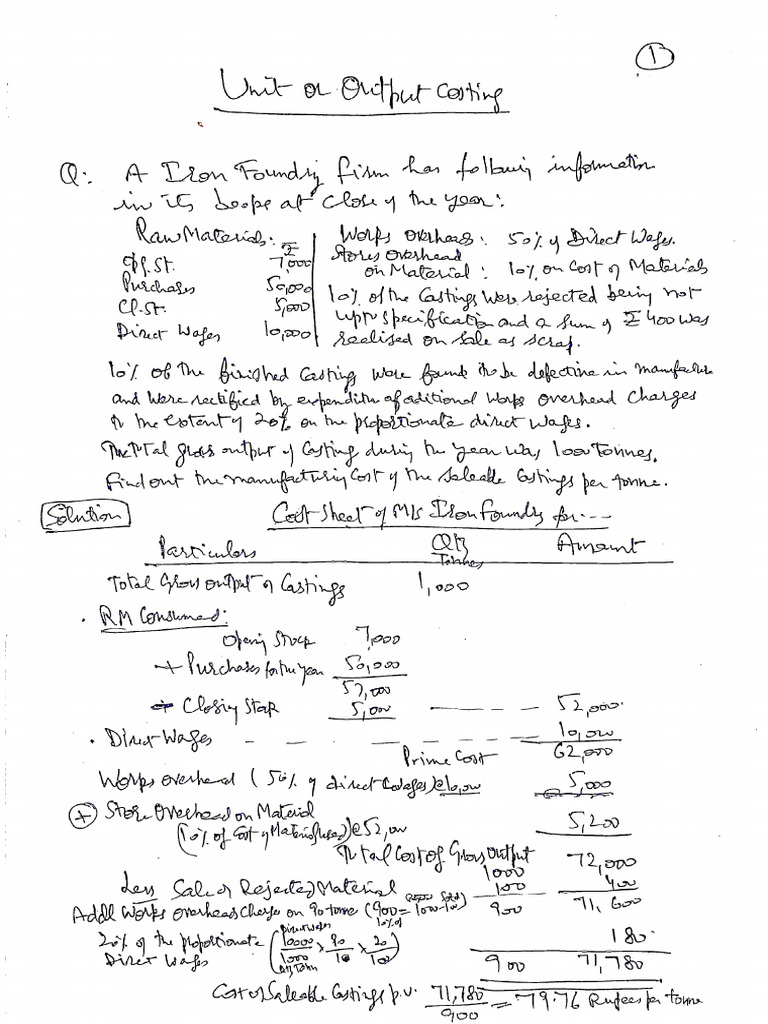 1
Unit or Output Costing
Q: A Iron Foundry firm has following information
in its books at close of the year:
Raw Materials: ₹
Op. St. 7,000
Purchases 50,000
Cl. St. 5,000
Direct Wages 10,000
Works overhead: 50% of Direct Wages.
Stores overhead
on Material: 10% on Cost of Materials
10% of the Castings were rejected being not
upto specification and a sum of ₹ 400 was
realised on sale as scrap.
10% of the finished Casting were found to be defective in manufacture
and were rectified by expenditure of aditional works overhead charges
to the extent of 20% on the proportionate direct wages.
The total gross output of casting during the year was 1000 Tonnes.
Find out the manufacturing cost of the saleable castings per tonne.
Solution Cost Sheet of M/s Iron Foundry for ---
Particulars Qty Amount
Tonnes
Total Gross output of Castings 1,000
RM Consumed:
Opening Stock 7,000
+ Purchases for the year 50,000
57,000
- Closing Stock 5,000 ------ 52,000
Direct Wages - - - - - - - 10,000
Prime Cost 62,000
Works overhead (50% of direct wages) @ 10,000 5,000
+ Store Overhead on Material
(10% of Cost of Material used) @ 52,000 5,200
Total Cost of Gross Output 72,000
1000
Less Sale of Rejected Material 100 - - 400
Addl Works overhead charge on 90 tonne (900 = 1000-100) 900 71,600
10% of
20% of the proportionate (10000/1000 × 90/10 × 20/100) 180
Direct Wages 900 71,780
Cost of Saleable Castings p.u. 71,780/900 = 79.76 Rupees per tonne